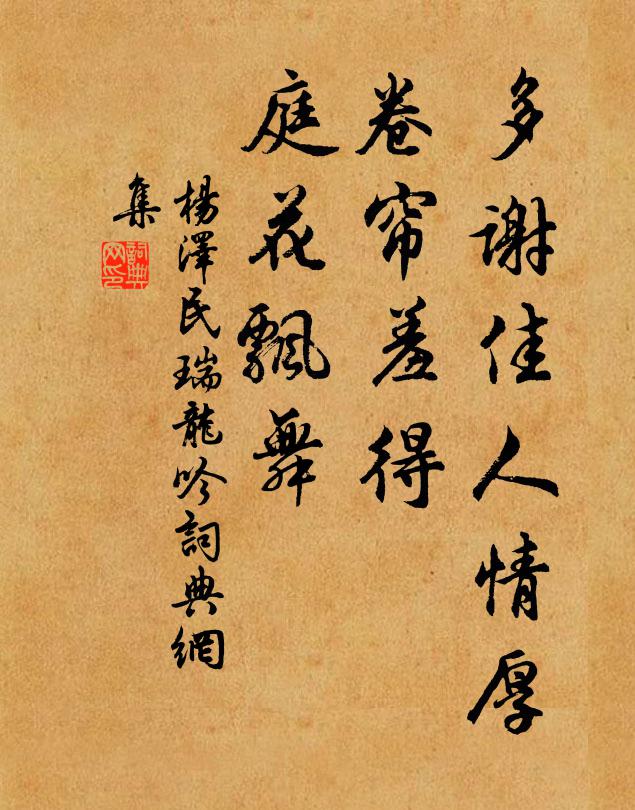 多谢佳人情厚
卷帘羞得
庭花飄舞
楊澤民瑞龍吟詞典網
集
詞典网印